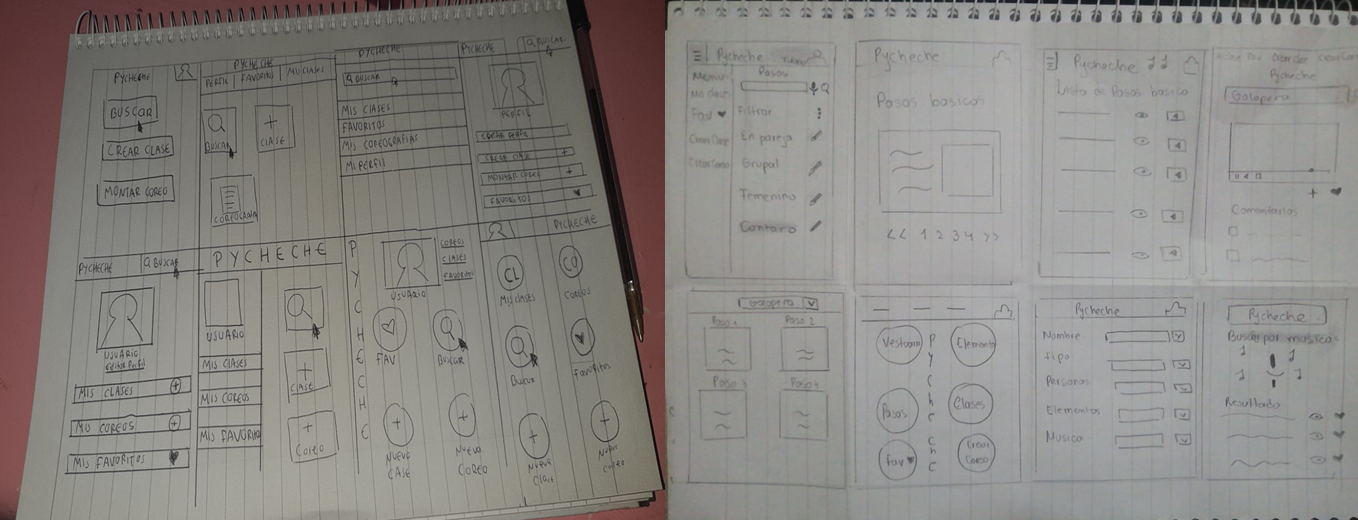 PYCHECHE
BUSCAR
CREAR CLASE
MONTAR COREO
PYCHECHE
PERFIL FAVORITOS MIS CLASES
BUSCAR
CLASE
COREOGRAFIA
PYCHECHE
BUSCAR
MIS CLASES
FAVORITOS
MIS COREOGRAFIAS
MI PERFIL
PYCHECHE BUSCAR
PERFIL
CREAR CLASE +
MONTAR COREO +
FAVORITOS
PYCHECHE BUSCAR
USUARIO
EDITAR PERFIL
MIS CLASES +
MIS COREOS +
MIS FAVORITOS
PYCHECHE
USUARIO
MIS CLASES
MIS COREOS
MIS FAVORITOS
+
CLASE
+
COREO
PYCHECHE
USUARIO
COREOS
CLASES
FAVORITOS
FAV
BUSCAR
+
NUEVA
CASE
+
NUEVA
COREO
PYCHECHE
CL
MIS CLASES
CO
COREOS
BUSCAR
FAVORITOS
+
NUEVA
CLASE
+
NUEVA
COREO
Pycheche
Menu
Mis clases
Fav
Pasos
Filtrar
En pareja
Grupal
Femenino
Cantaro
Pycheche
Pasos basicos
<< 1 2 3 4 >>
Pycheche
Lista de Pasos basico
Pycheche
Galopera
+
Comentarios
Galopera
Paso 1 Paso 2
Paso 3 Paso 4
Vestuario
Elemento
Pycheche
Pasos
Clases
Fav
Crear
Coreo
Pycheche
Nombre
Tipo
Personas
Elementos
Musica
Pycheche
Buscar por musica
Resultado